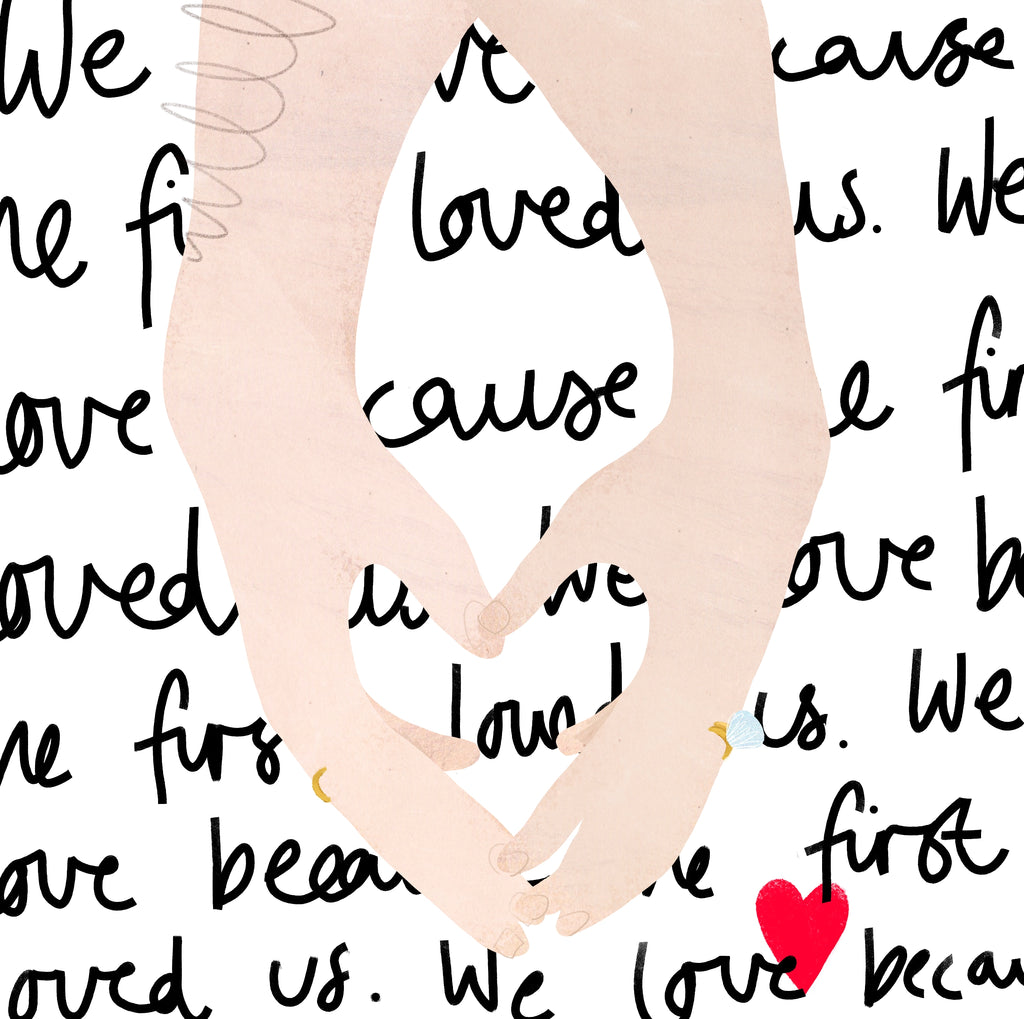 We ve cause
he fi loved us. We
ove cause e fir
oved us We love be
he first loved us. We
ove because he first
oved us. We love becau